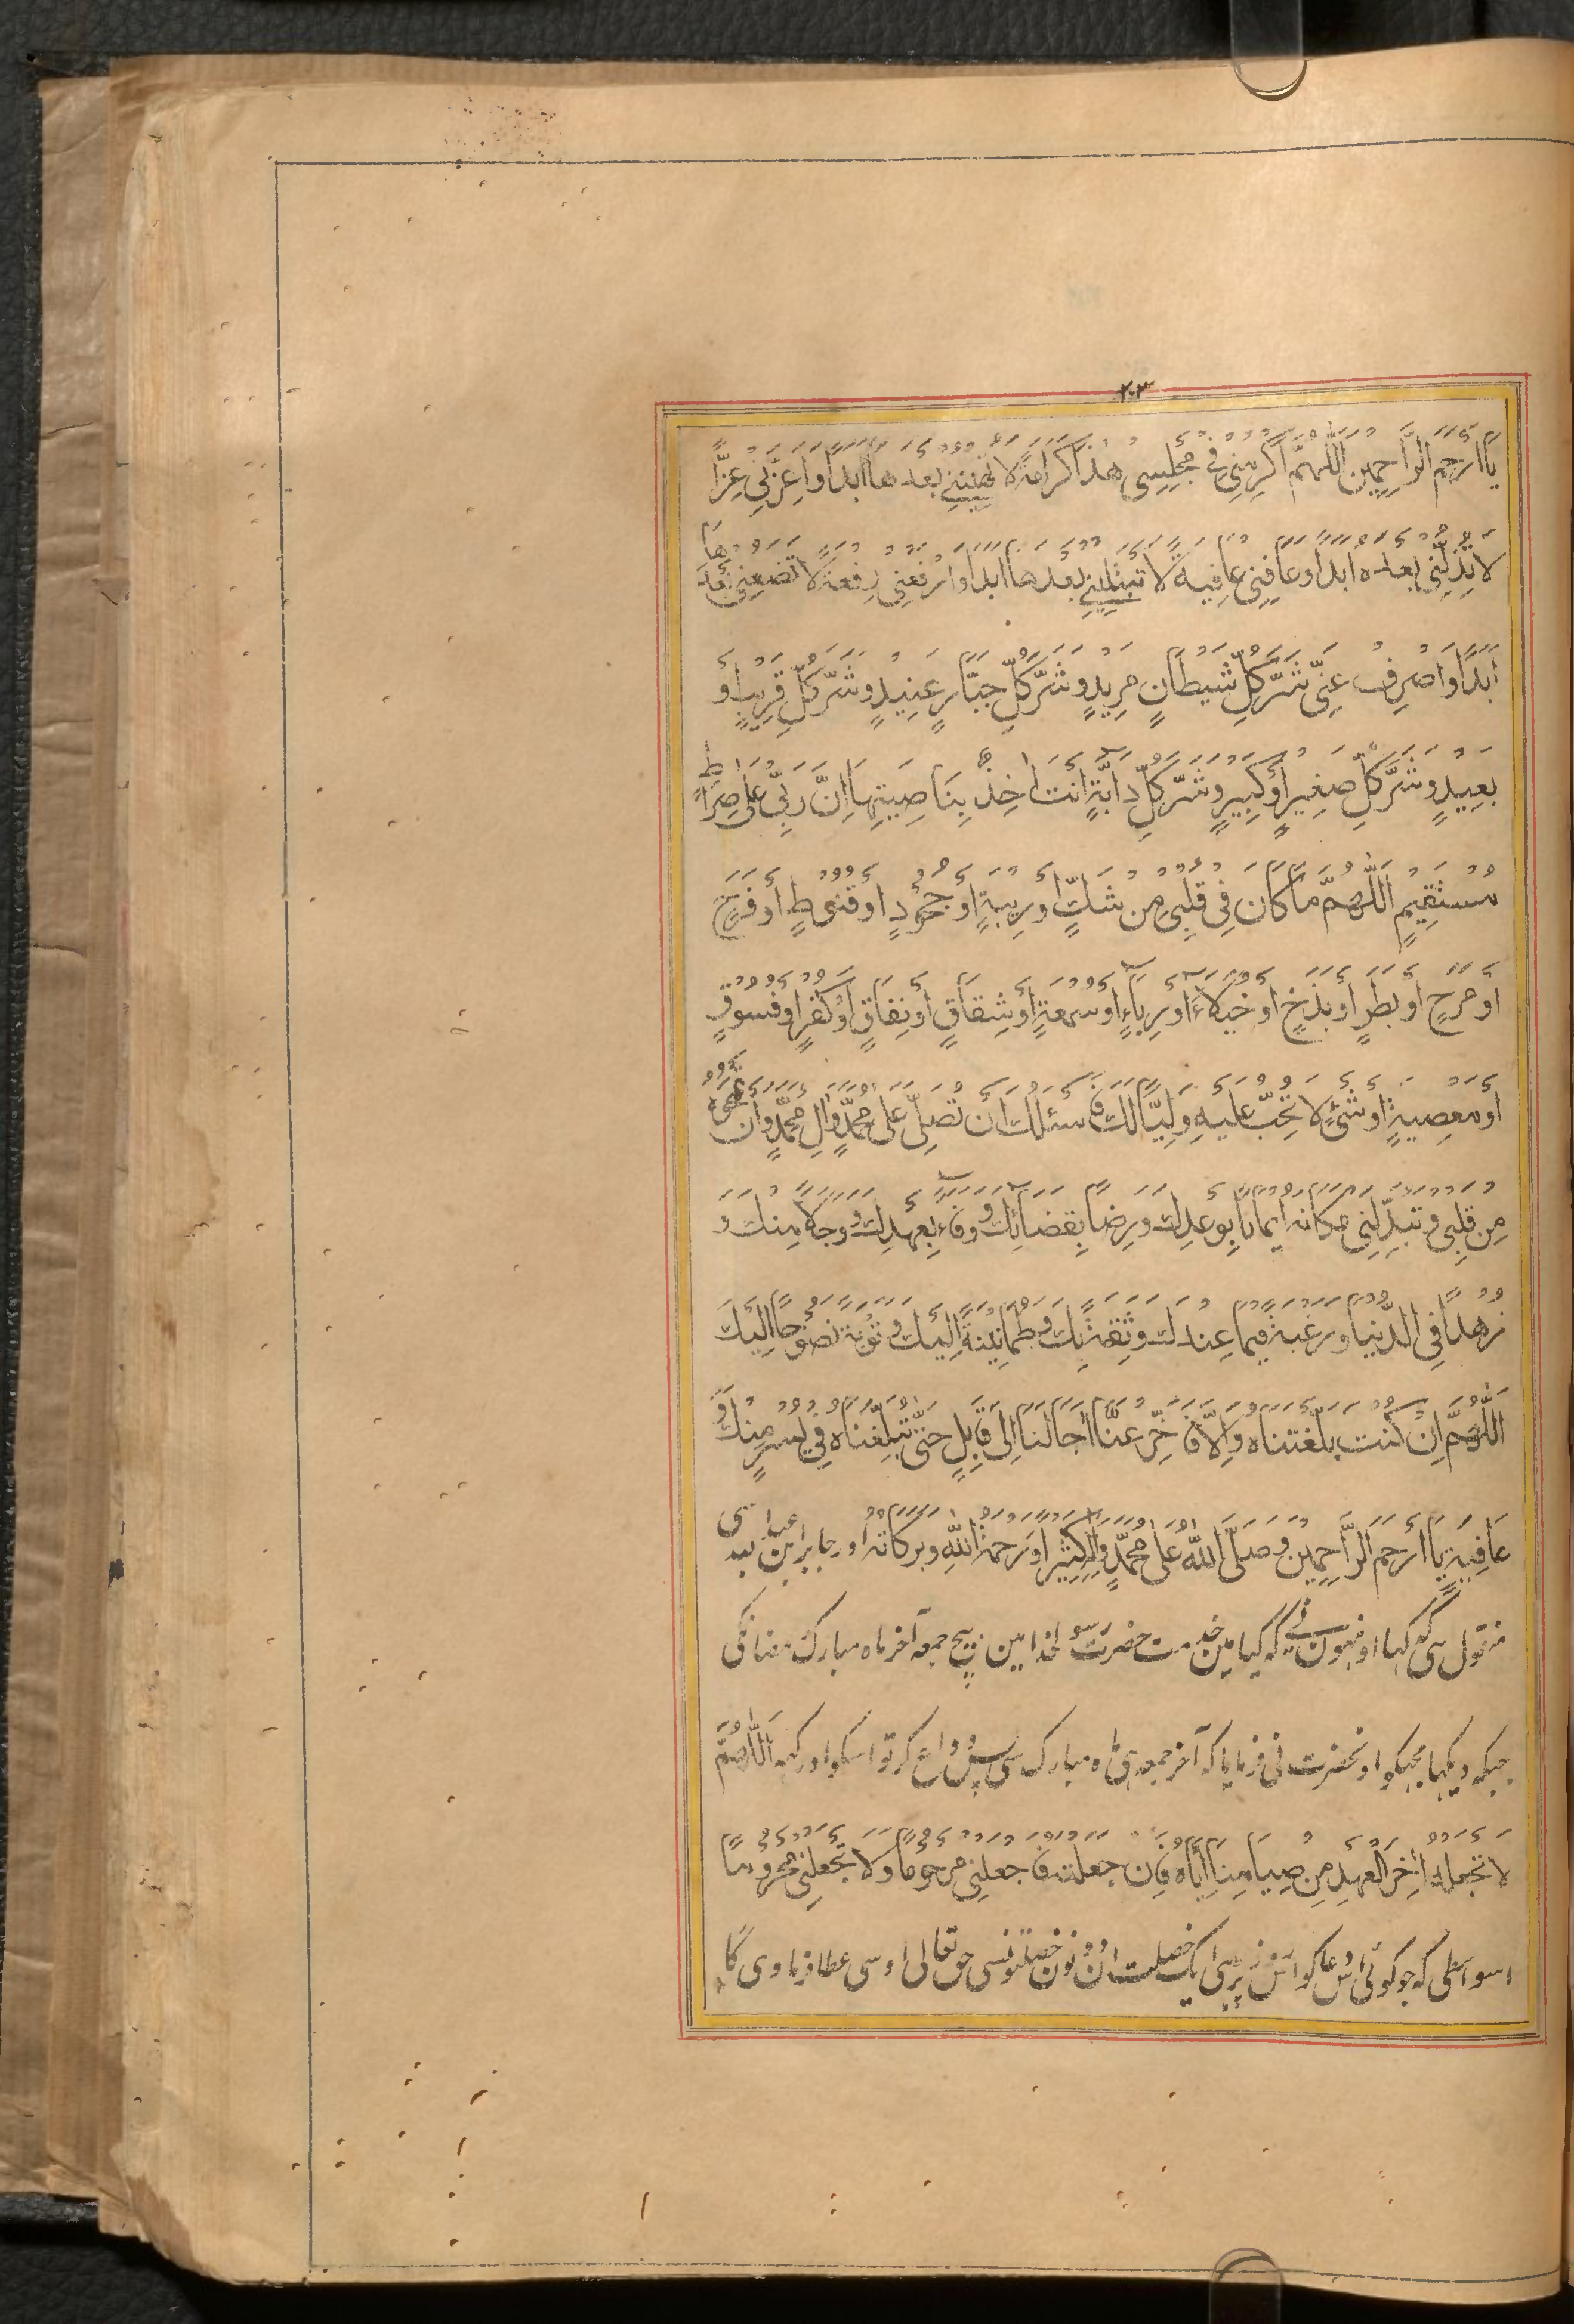 ٢٠٣
يَا اَرْحَمَ الرَّاحِمِينَ اَللّٰهُمَّ اَكْرِمْنِي فِي مَجْلِسِي هٰذَا كَرَامَةً لَا تُهِينُنِي بَعْدَهَا اَبَدًا وَاَعِزَّنِي عِزًّا
لَا تُذِلُّنِي بَعْدَهُ اَبَدًا وَعَافِنِي عَافِيَةً لَا تَبْتَلِينِي بَعْدَهَا اَبَدًا وَارْفَعْنِي رِفْعَةً لَا تَضَعُنِي بَعْدَهَا
اَبَدًا وَاصْرِفْ عَنِّي شَرَّ كُلِّ شَيْطَانٍ مَرِيدٍ وَشَرَّ كُلِّ جَبَّارٍ عَنِيدٍ وَشَرَّ كُلِّ قَرِيبٍ اَوْ
بَعِيدٍ وَشَرَّ كُلِّ صَغِيرٍ اَوْ كَبِيرٍ وَشَرَّ كُلِّ دَآبَّةٍ اَنْتَ اٰخِذٌ بِنَاصِيَتِهَا اِنَّ رَبِّي عَلٰى صِرَاطٍ
مُسْتَقِيمٍ اَللّٰهُمَّ مَا كَانَ فِي قَلْبِي مِنْ شَكٍّ اَوْ رِيبَةٍ اَوْ جُحُودٍ اَوْ قُنُوطٍ اَوْ فَرَحٍ
اَوْ مَرَحٍ اَوْ بَطَرٍ اَوْ بَذَخٍ اَوْ خُيَلَآءَ اَوْ رِيَآءٍ اَوْ سُمْعَةٍ اَوْ شِقَاقٍ اَوْ نِفَاقٍ اَوْ كُفْرٍ اَوْ فُسُوقٍ
اَوْ مَعْصِيَةٍ اَوْ شَيْءٍ لَا تُحِبُّ عَلَيْهِ وَلِيًّا لَكَ فَاَسْئَلُكَ اَنْ تُصَلِّيَ عَلٰى مُحَمَّدٍ وَاٰلِ مُحَمَّدٍ وَاَنْ تَمْحُوَهُ
مِنْ قَلْبِي وَتُبَدِّلَنِي مَكَانَهُ اِيمَانًا بِوَعْدِكَ وَرِضًا بِقَضَآئِكَ وَوَفَآءً بِعَهْدِكَ وَوَجَلًا مِنْكَ وَ
زُهْدًا فِي الدُّنْيَا وَرَغْبَةً فِيمَا عِنْدَكَ وَثِقَةً بِكَ وَطُمَانِينَةً اِلَيْكَ وَتَوْبَةً نَصُوحًا اِلَيْكَ
اَللّٰهُمَّ اِنْ كُنْتَ بَلَّغْتَنَاهُ وَاِلَّا فَاَخِّرْ عَنَّا اٰجَالَنَا اِلٰى قَابِلٍ حَتّٰى تُبَلِّغَنَاهُ فِي يُسْرٍ مِنْكَ وَ
عَافِيَةٍ يَا اَرْحَمَ الرَّاحِمِينَ وَصَلَّى اللهُ عَلٰى مُحَمَّدٍ وَاٰلِهِ كَثِيرًا وَرَحْمَةُ اللهِ وَبَرَكَاتُهُ اور جابر ابن
منقول ہی کہ کہا اونہون نے کہ گیا مین خدمت حضرت رسولخدا مین بیچ جمعہ آخر ماہ مبارک رمضانکی
جبکہ دیکہا مجہکو اونحضرت نی فرمایا کہ آخر جمعہ ہی ماہ مبارک سی پس وداع کر تو اسکو اور کہہ اَللّٰهُمَّ
لَا تَجْعَلْهُ اٰخِرَ الْعَهْدِ مِنْ صِيَامِنَا اِيَّاهُ فَاِنْ جَعَلْتَهُ فَاجْعَلْنِي مَرْحُومًا وَلَا تَجْعَلْنِي مَحْرُومًا
اسواسطی کہ جو کوئی اس دعا کو اس روز پڑہی ایک خصلت ان دونون خصلتونسی حق تعالی اوسی عطا فرماوی گا